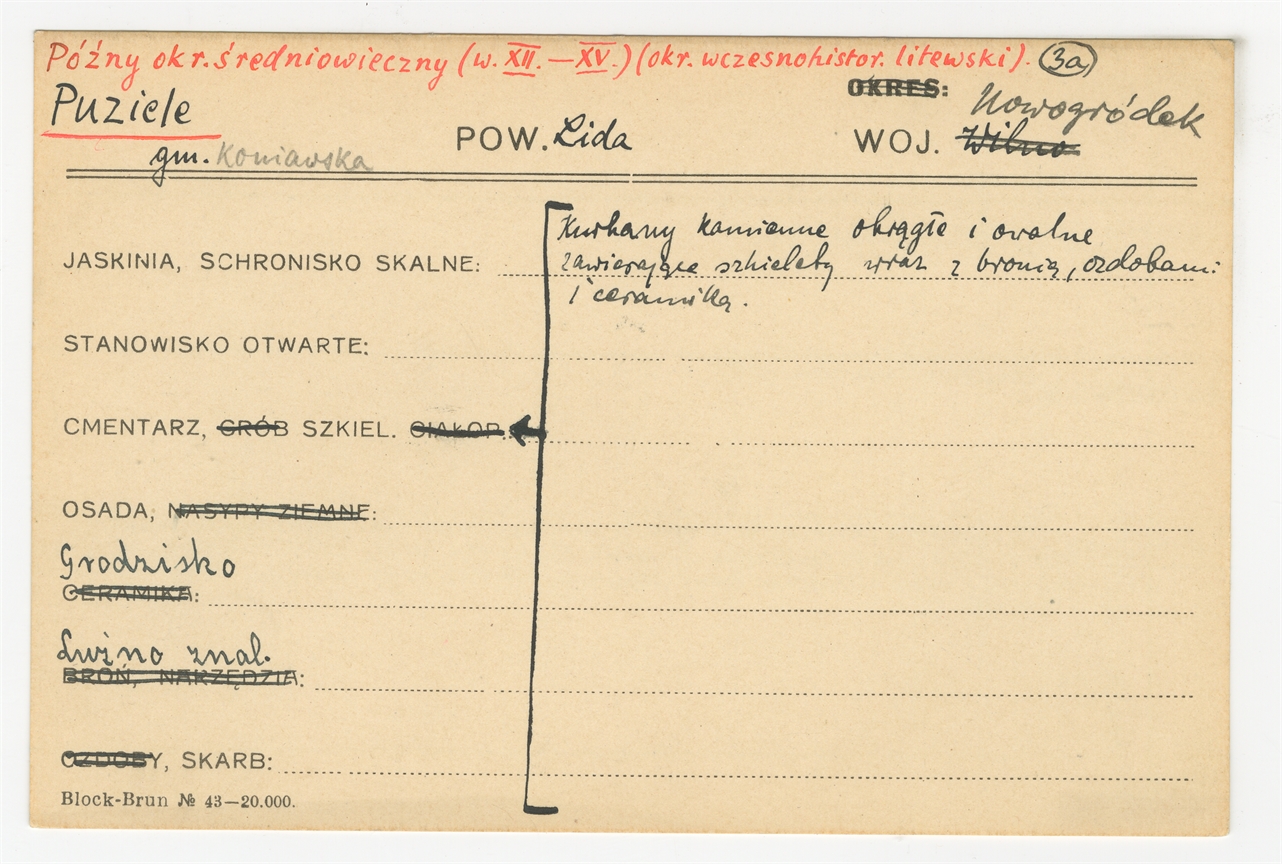 Późny okr. średniowieczny (w. XII. — XV.) (okr. wczesnohistor. litewski). 3a
Puziele
OKRES:
POW. Lida
WOJ. Wilno Nowogródek
gm. Koniawska
Kurhany kamienne okrągłe i owalne
JASKINIA, SCHRONISKO SKALNE: zawierające szkielety wraz z bronią, ozdobami
i ceramiką.
STANOWISKO OTWARTE:
CMENTARZ, GRÓB SZKIEL. CIAŁOP.
OSADA, NASYPY ZIEMNE:
Grodzisko
CERAMIKA:
Luźno znal.
BROŃ, NARZĘDZIA:
OZDOBY, SKARB:
Block-Brun № 43—20.000.